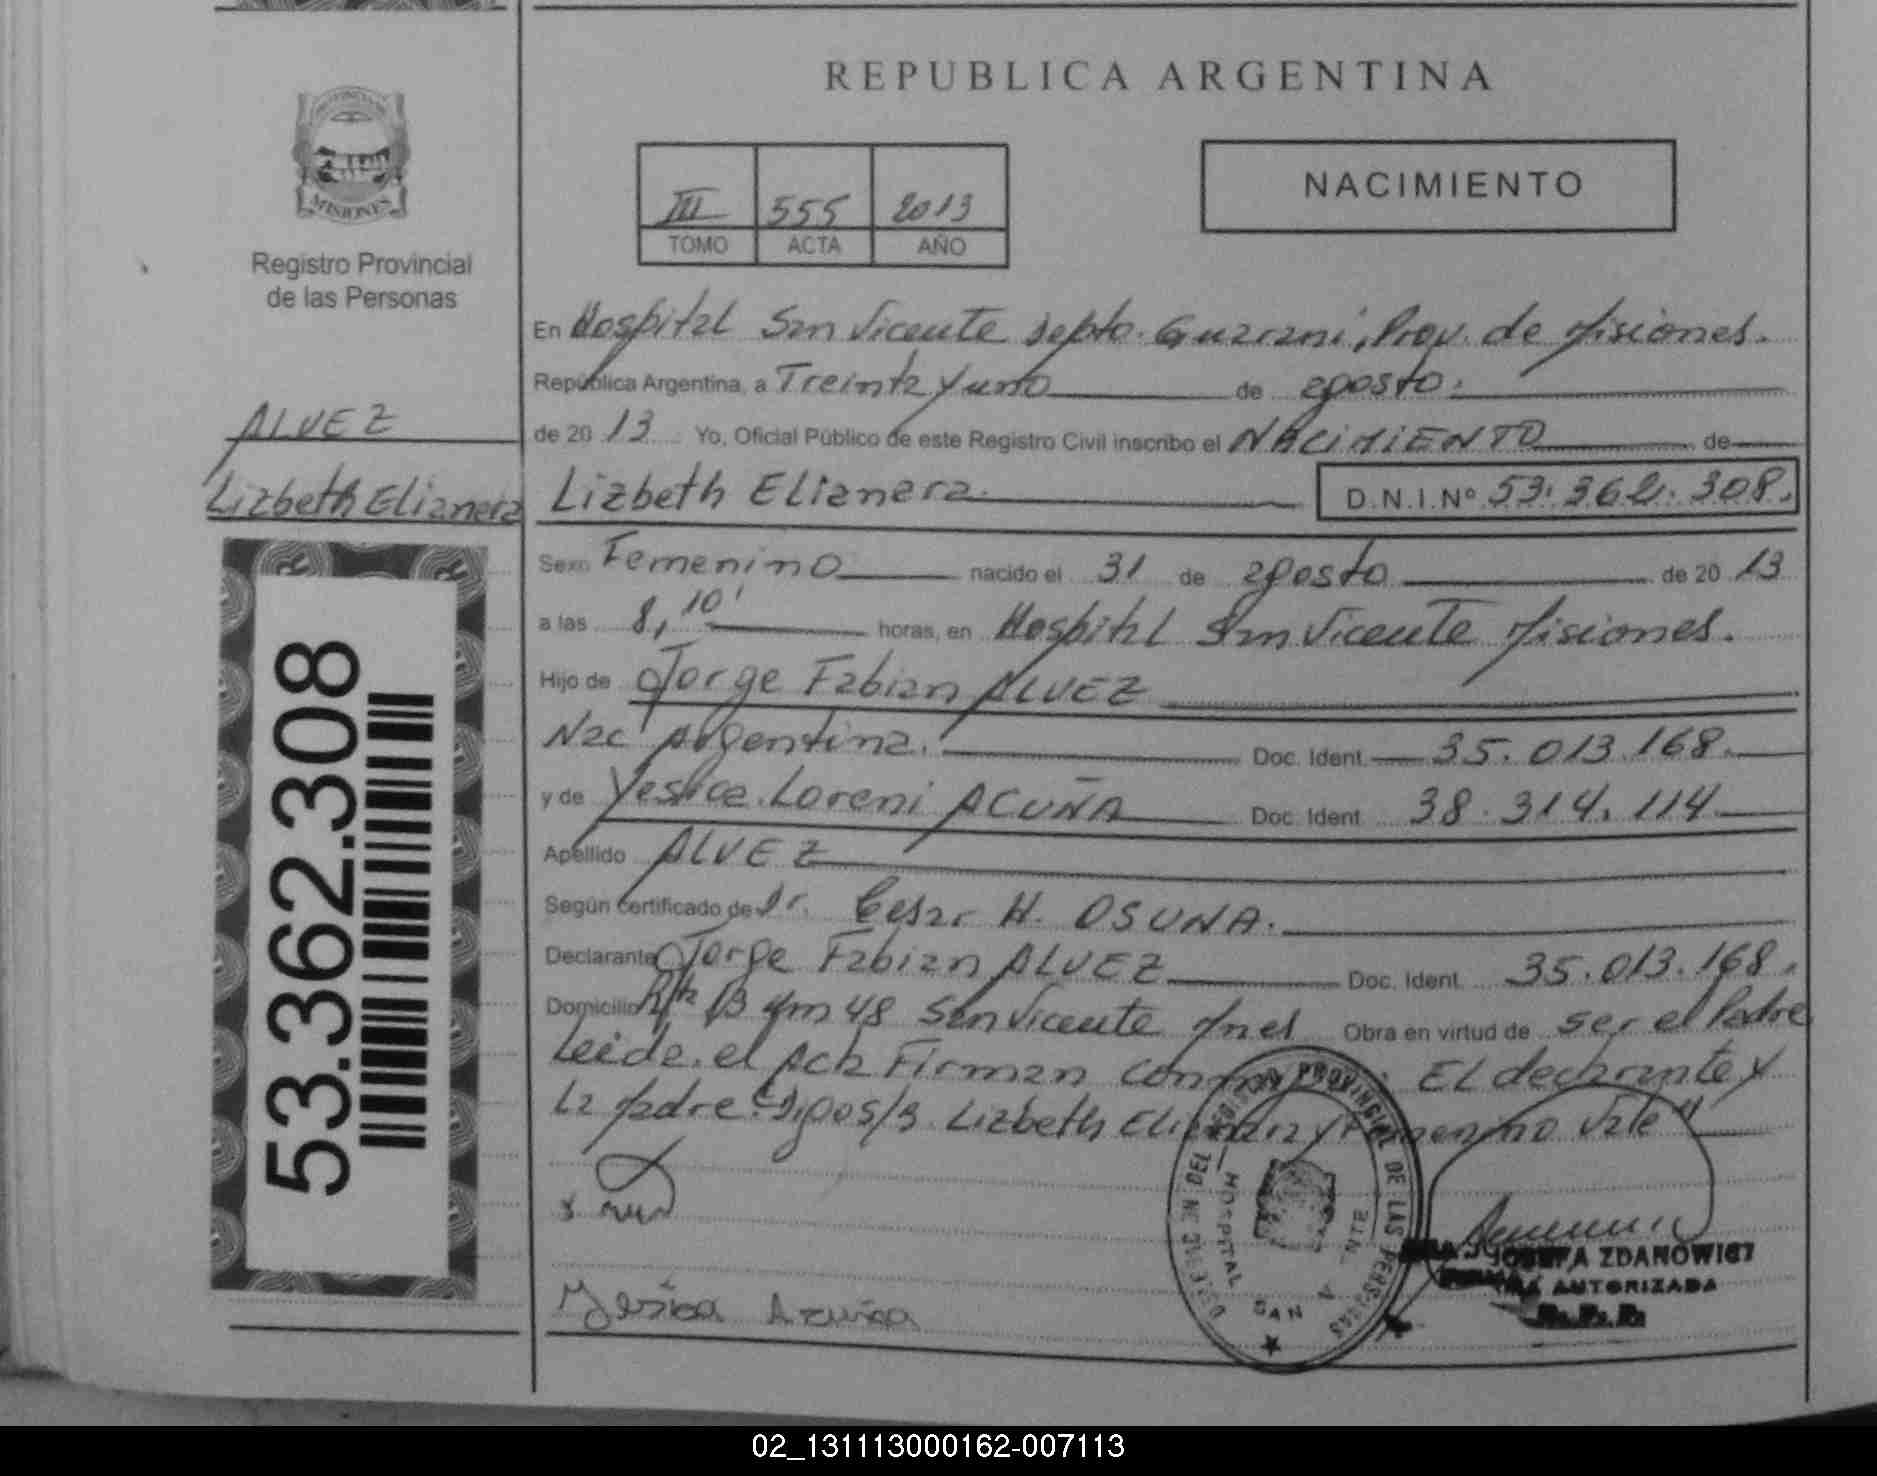 REPUBLICA ARGENTINA
MISIONES
Registro Provincial
de las Personas
III 555 2013
TOMO ACTA AÑO
NACIMIENTO
En Hospital San Vicente Depto. Guarani, Prov. de Misiones.
República Argentina, a Treinta y uno de agosto.
de 20 13 Yo, Oficial Público de este Registro Civil inscribo el NACIMIENTO de
ALVEZ
Lizbeth Elianera
Lizbeth Elianera. D.N.I.Nº 53.362.308.
Sexo Femenino nacido el 31 de agosto de 20 13
a las 8,10' horas, en Hospital San Vicente Misiones.
Hijo de Jorge Fabian ALVEZ
Nac Argentina. Doc. Ident. 35.013.168.
y de Loreni ACUÑA Doc. Ident. 38.314.114
Apellido ALVEZ
Según certificado de Dr. Cesar H. OSUNA.
Declarante Jorge Fabian ALVEZ Doc. Ident. 35.013.168.
Domicilio Km 48 San Vicente Mnes Obra en virtud de ser el Padre
Leida el Acta Firman El declarante y
La Lizbeth Vale"
53.362.308
REGISTRO PROVINCIAL DE LAS PERSONAS
HOSPITAL SAN
JOSEFA ZDANOWICZ
AUTORIZADA
R.P.P.
Acuña
02_131113000162-007113